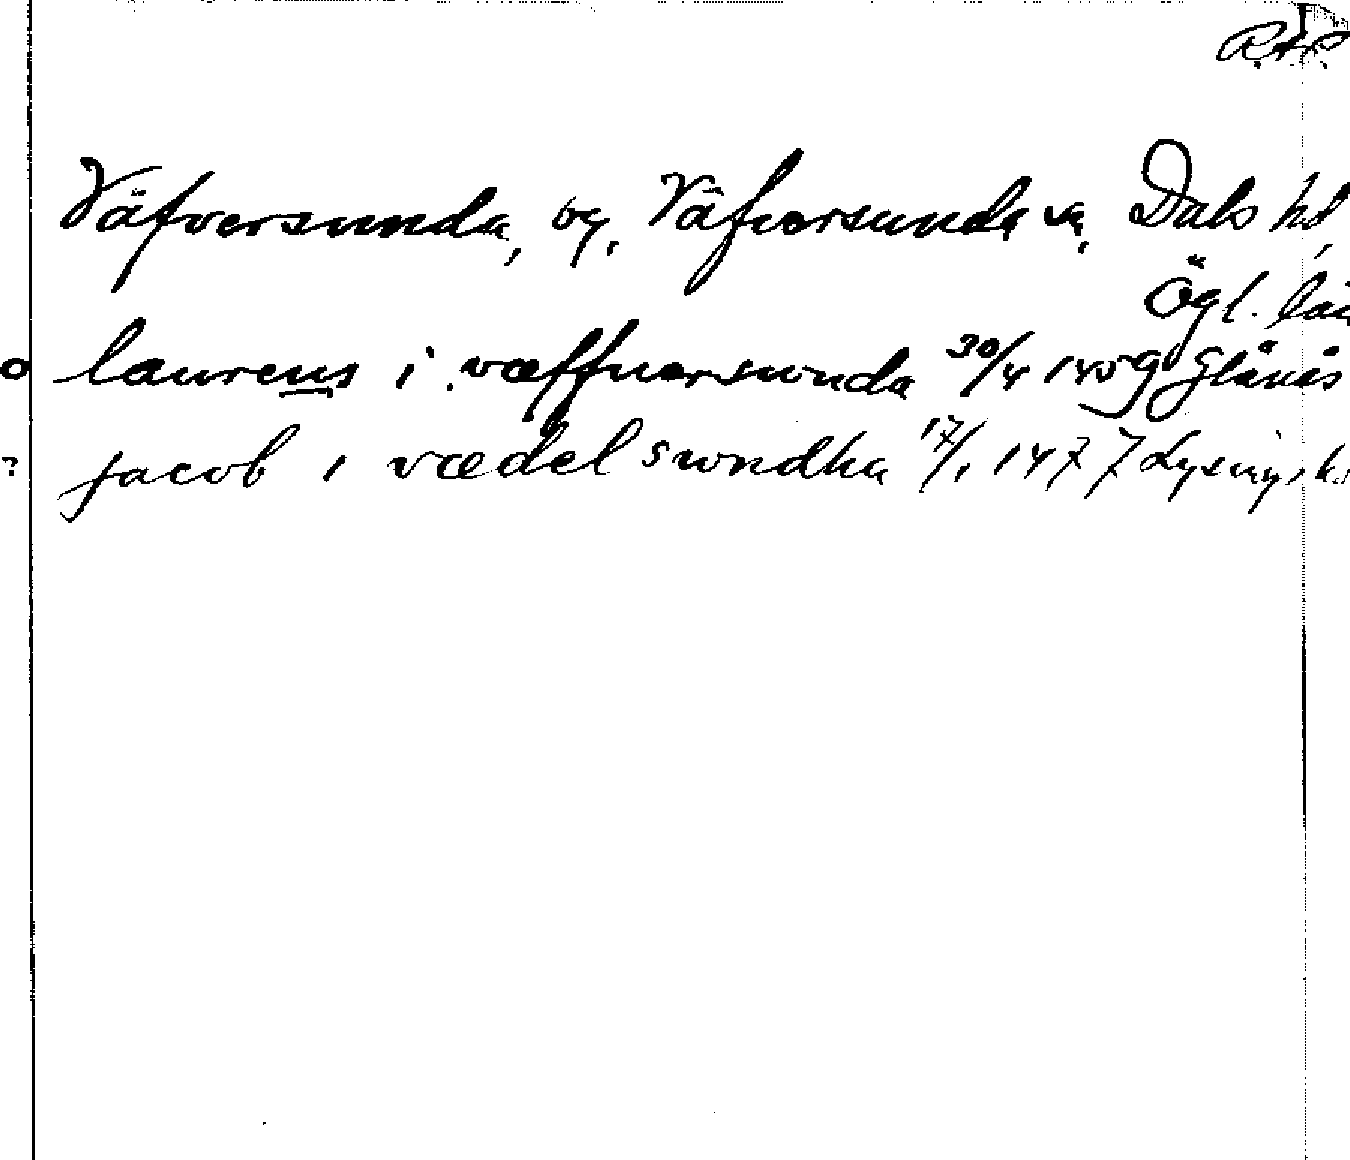 RAP
Väfversunda, by, Väfversunda sn, Dals hd,
Ögl. län
o laurens i væffuersunda 30/4 1459 Glänås
? jacob i vædelsundha 17/1 1477 Lysing, h.